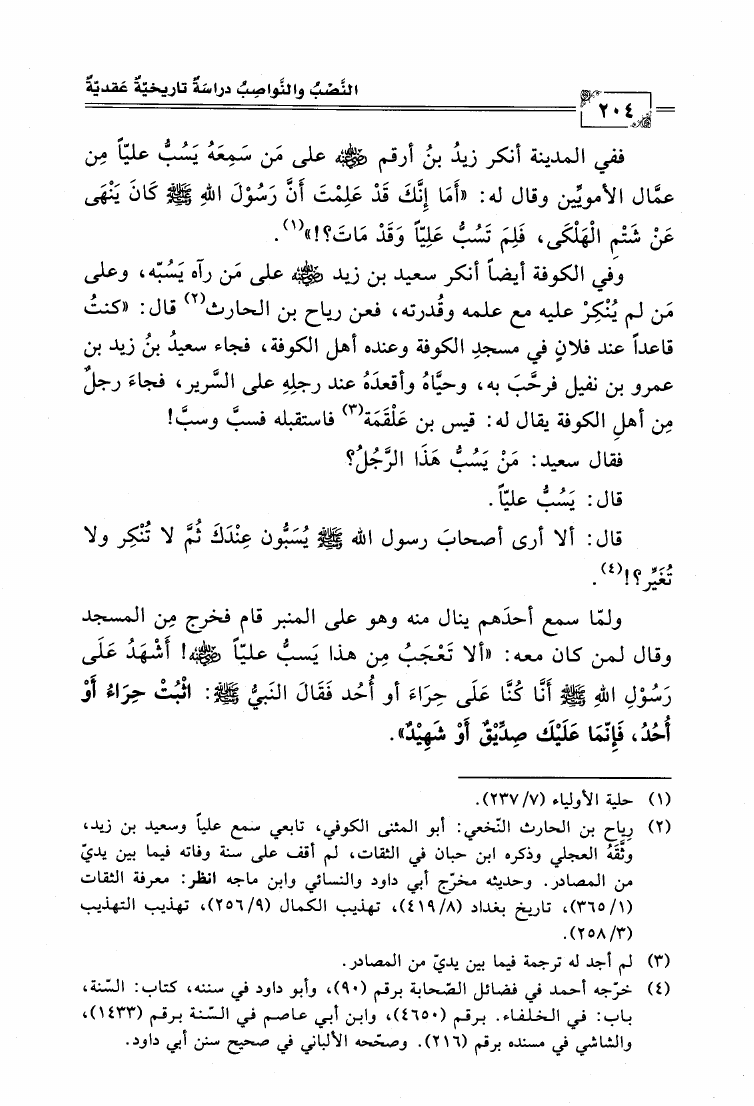 النَّصْبُ والنَّواصِبُ دراسَةٌ تاريخيّةٌ عَقديّةٌ
٢٠٤
ففي المدينة أنكر زيدُ بنُ أرقم ﷺ على مَن سَمِعَهُ يَسُبُّ عليّاً مِن
عمَّال الأمويِّين وقال له: «أَمَا إِنَّكَ قَدْ عَلِمْتَ أَنَّ رَسُوْلَ اللهِ ﷺ كَانَ يَنْهَى
عَنْ شَتْمِ الْهَلْكَى، فَلِمَ تَسُبُّ عَلِيّاً وَقَدْ مَاتَ؟!»(١).
وفي الكوفة أيضاً أنكر سعيد بن زيد رضي الله عنه على مَن رآه يَسُبّه، وعلى
مَن لم يُنْكِرْ عليه مع علمه وقُدرته، فعن رياح بن الحارث(٢) قال: «كنتُ
قاعداً عند فلانٍ في مسجدِ الكوفة وعنده أهل الكوفة، فجاء سعيدُ بنُ زيد بن
عمرو بن نفيل فرحَّبَ به، وحيَّاهُ وأقعدَهُ عند رجلِهِ على السَّرير، فجاءَ رجلٌ
مِن أهلِ الكوفة يقال له: قيس بن عَلْقَمَة(٣) فاستقبله فسبَّ وسبَّ!
فقال سعيد: مَنْ يَسُبُّ هَذَا الرَّجُلُ؟
قال: يَسُبُّ عليّاً.
قال: ألا أرى أصحابَ رسول الله ﷺ يُسَبُّون عِنْدَكَ ثُمَّ لا تُنْكِر ولا
تُغَيِّر؟!(٤).
ولمّا سمع أحدَهم ينال منه وهو على المنبر قام فخرج مِن المسجد
وقال لمن كان معه: «ألا تَعْجَبُ مِن هذا يَسبُّ عليّاً رضي الله عنه! أَشْهَدُ عَلَى
رَسُوْلِ اللهِ ﷺ أَنَّا كُنَّا عَلَى حِرَاءَ أو أُحُد فَقَالَ النَبيُّ ﷺ: اثْبُتْ حِرَاءُ أَوْ
أُحُدُ، فَإِنَّمَا عَلَيْكَ صِدِّيْقٌ أَوْ شَهِيْدٌ».
(١) حلية الأولياء (٢٣٧/٧).
(٢) رِياح بن الحارث النّخعي: أبو المثنى الكوفي، تابعي سمع علياً وسعيد بن زيد،
وثَّقَهُ العجلي وذكره ابن حبان في الثقات، لم أقف على سنة وفاته فيما بين يديّ
من المصادر. وحديثه مخرّج أبي داود والنسائي وابن ماجه انظر: معرفة الثقات
(٣٦٥/١)، تاريخ بغداد (٤١٩/٨)، تهذيب الكمال (٢٥٦/٩)، تهذيب التهذيب
(٢٥٨/٣).
(٣) لم أجد له ترجمة فيما بين يديّ من المصادر.
(٤) خرّجه أحمد في فضائل الصّحابة برقم (٩٠)، وأبو داود في سننه، كتاب: السّنة،
باب: في الخلفاء. برقم (٤٦٥٠)، وابن أبي عاصم في السّنة برقم (١٤٣٣)،
والشاشي في مسنده برقم (٢١٦). وصحّحه الألباني في صحيح سنن أبي داود.